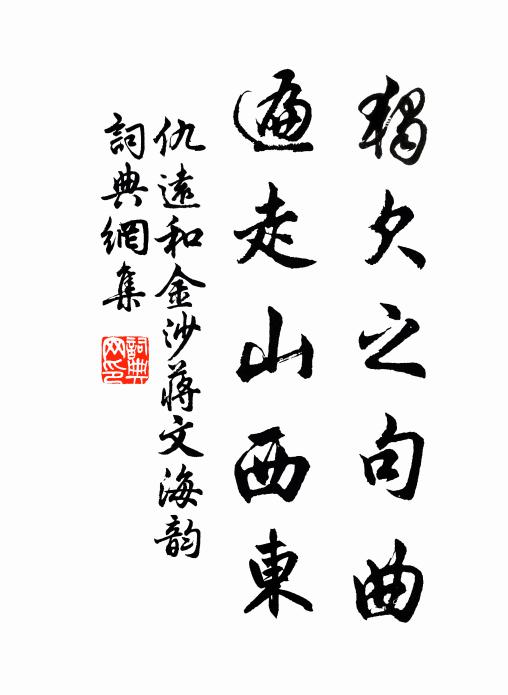 獨欠之句曲
遍走山西東
仇遠和金沙蔣文海韻
詞典網集
詞典網印